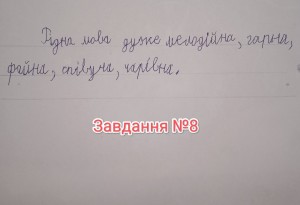 Рідна мова дуже мелодійна, гарна,
файна, співуча, чарівна.
Завдання №8